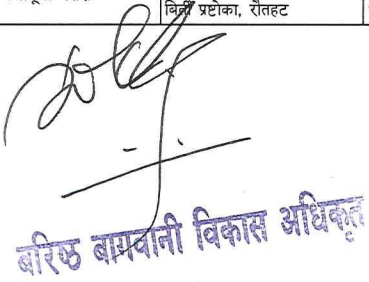 बिर्ता प्रष्टोका, रौतहट
बरिष्ठ बागवानी विकास अधिकृत